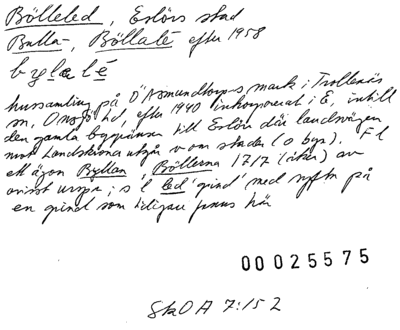 Bölleled, Eslövs stad
Bulla-, Böllalé efter 1958
bylalé
hussamling på O'Asmundtorps mark i Trollenäs
sn, Onsjö hd, efter 1940 inkorporerat i E, intill
den gamla bygränsen till Eslöv där landsvägen
mot Landskrona utgår v om staden (o bys). F l
ett ägon Byllan, Böllerna 1717 (åker) av
ovisst urspr; s l led 'grind' med syftn på
en grind som tidigare fanns här
00025575
SkOA 7:152